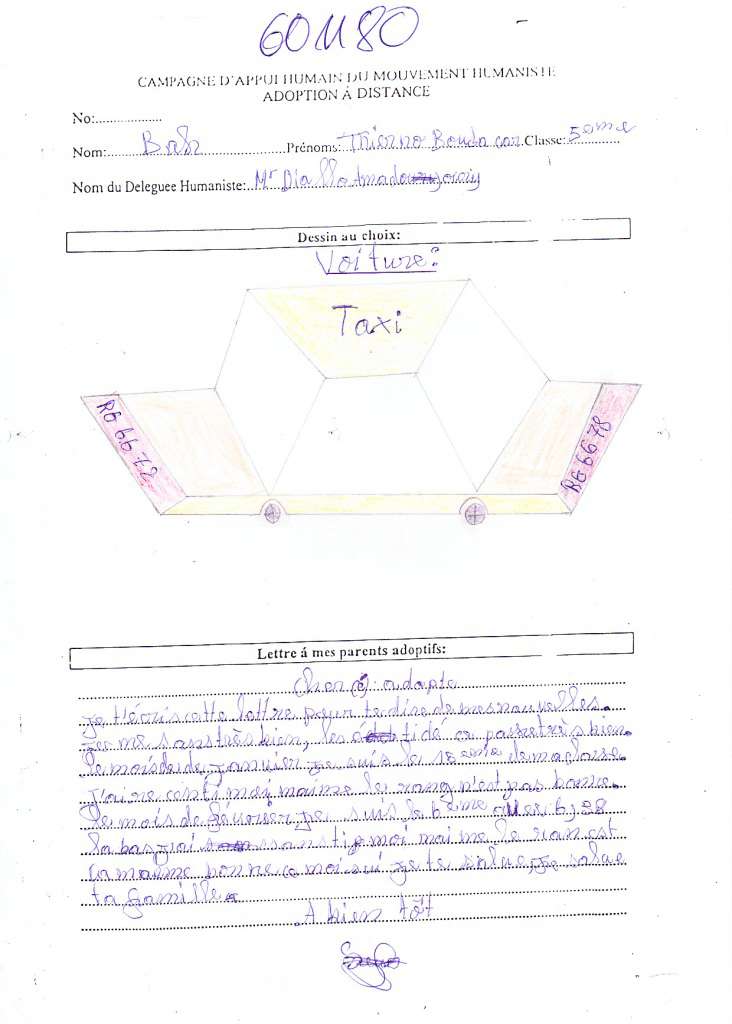 601180
CAMPAGNE D'APPUI HUMAIN DU MOUVEMENT HUMANISTE
ADOPTION Á DISTANCE
No:
Nom: Bah Prénoms: Thierno Bouba car Classe: 5eme
Nom du Deleguee Humaniste: Mr Diallo Amadou
Dessin au choix:
Voiture:
Taxi
RG 66 78
RG 66 78
Lettre á mes parents adoptifs:
Cher(é) adopte
Je t'écris cette lettre pour te dire de mes nouvelles.
Je me sans très bien, les ca passe très bien.
le mois de de janvier je suis le 18eme de ma classe.
J'ai moi maime le rang n'est pas bonne.
le mois de février je suis le 6eme
la bas j'ai moi maime le ran est
ca maime bonne ce moi ci je te salue, je salue
ta famille.
A bien tôt